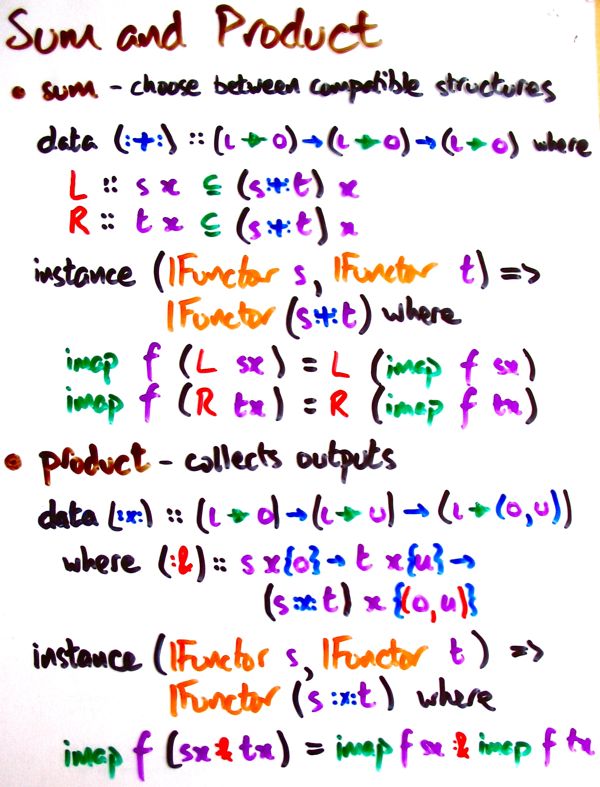 Sum and Product
• sum - choose between compatible structures
data (:+:) :: (ι ➔ o) → (ι ➔ o) → (ι ➔ o) where
L :: s x ⊆ (s :+: t) x
R :: t x ⊆ (s :+: t) x
instance (IFunctor s, IFunctor t) =>
IFunctor (s :+: t) where
imap f (L sx) = L (imap f sx)
imap f (R tx) = R (imap f tx)
• product - collects outputs
data (:x:) :: (ι ➔ o) → (ι ➔ u) → (ι ➔ (o,u))
where (:&) :: s x{o} → t x{u} →
(s :x: t) x {(o,u)}
instance (IFunctor s, IFunctor t) =>
IFunctor (s :x: t) where
imap f (sx :& tx) = imap f sx :& imap f tx